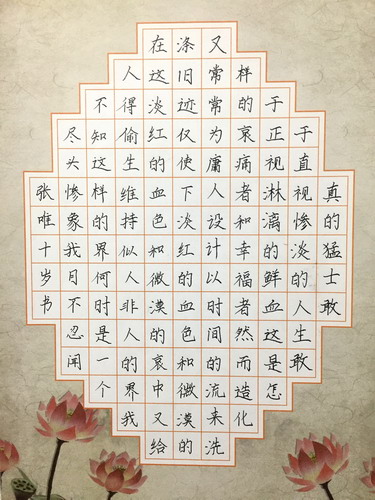 真的猛士敢
于直视惨淡的人生敢
于正视淋漓的鲜血这是怎
样的哀痛者和幸福者然而造化
又常常为庸人设计以时间的流来洗
涤旧迹仅使下淡红的血色和微漠的
在这淡红的血色和微漠的哀中又给
人得偷生维持似人非人的界我
不知这样的界何时是一个
尽头惨象我月不忍闻
张唯十岁书